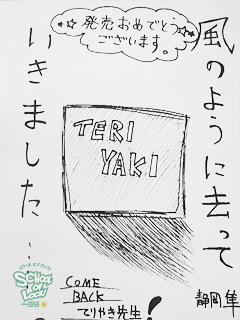 ☆☆発売おめでとう☆
ございます。
風のように去って
いきました…
TERI
YAKI
静岡 隼
COME
BACK
てりやき先生!
SCHOOL
OF
LOCK!